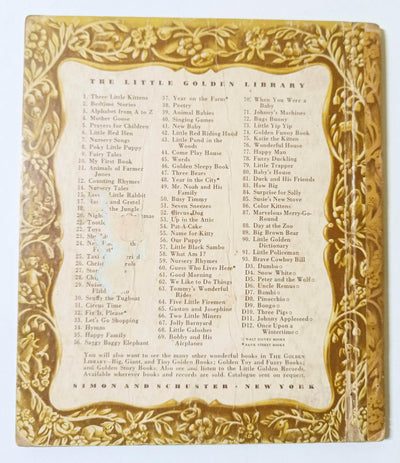 THE LITTLE GOLDEN LIBRARY
1. Three Little Kittens
2. Bedtime Stories
3. Alphabet from A to Z
4. Mother Goose
5. Prayers for Children
6. Little Red Hen
7. Nursery Songs
8. Poky Little Puppy
9. Fairy Tales
10. My First Book
11. Animals of Farmer
Jones
12. Counting Rhymes
14. Nursery Tales
15. Rabbit
17. and Gretel
18. the Jungle
20.
Tootle
22. Toys
23.
24.
25. Taxi
26.
27.
28.
29. Noises
30. Scuffy the Tugboat
31. Circus Time
32. Fix It, Please*
33. Let's Go Shopping
34. Hymns
35. Happy Family
36. Saggy Baggy Elephant
37. Year on the Farm*
38. Poetry
39. Animal Babies
40. Singing Games
41. New Baby
42. Little Red Riding Hood
43. Little Pond in the
Woods
44. Come Play House
45. Words
46. Golden Sleepy Book
47. Three Bears
48. Year in the City*
49. Mr. Noah and His
Family
50. Busy Timmy
51. Seven Sneezes
52. Circus Dog
53. Up in the Attic
54. Pat-A-Cake
55. Name for Kitty
56. Our Puppy
57. Little Black Sambo
58. What Am I?
59. Nursery Rhymes
60. Guess Who Lives Here*
61. Good Morning
62. We Like to Do Things
63. Tommy's Wonderful
Rides
64. Five Little Firemen
65. Gaston and Josephine
66. Two Little Miners
67. Jolly Barnyard
68. Little Galoshes
69. Bobby and His
Airplanes
70. When You Were a
Baby
71. Johnny's Machines
72. Bugs Bunny
73. Little Yip Yip
74. Golden Funny Book
75. Katie the Kitten
76. Wonderful House
77. Happy Man
78. Fuzzy Duckling
79. Little Trapper
80. Baby's House
81. Duck and His Friends
83. How Big
84. Surprise for Sally
85. Susie's New Stove
86. Color Kittens
87. Marvelous Merry-Go-
Round
88. Day at the Zoo
89. Big Brown Bear
90. Little Golden
Dictionary
91. Little Policeman
93. Brave Cowboy Bill
D3. Dumbo
D4. Snow White
D5. Peter and the Wolf
D6. Uncle Remus
D7. Bambi
D8. Pinocchio
D9. Bongo
D10. Three Pigs
D11. Johnny Appleseed
D12. Once Upon a
Wintertime
WALT DISNEY BOOKS
You will also want to see the many other wonderful books in THE GOLDEN
LIBRARY—Big, Giant, and Tiny Golden Books; Golden Toy and Fuzzy Books;
and Golden Story Books; Also see and listen to the Little Golden Records.
Available wherever books and records are sold. Catalogue sent on request.
SIMON AND SCHUSTER · NEW YORK